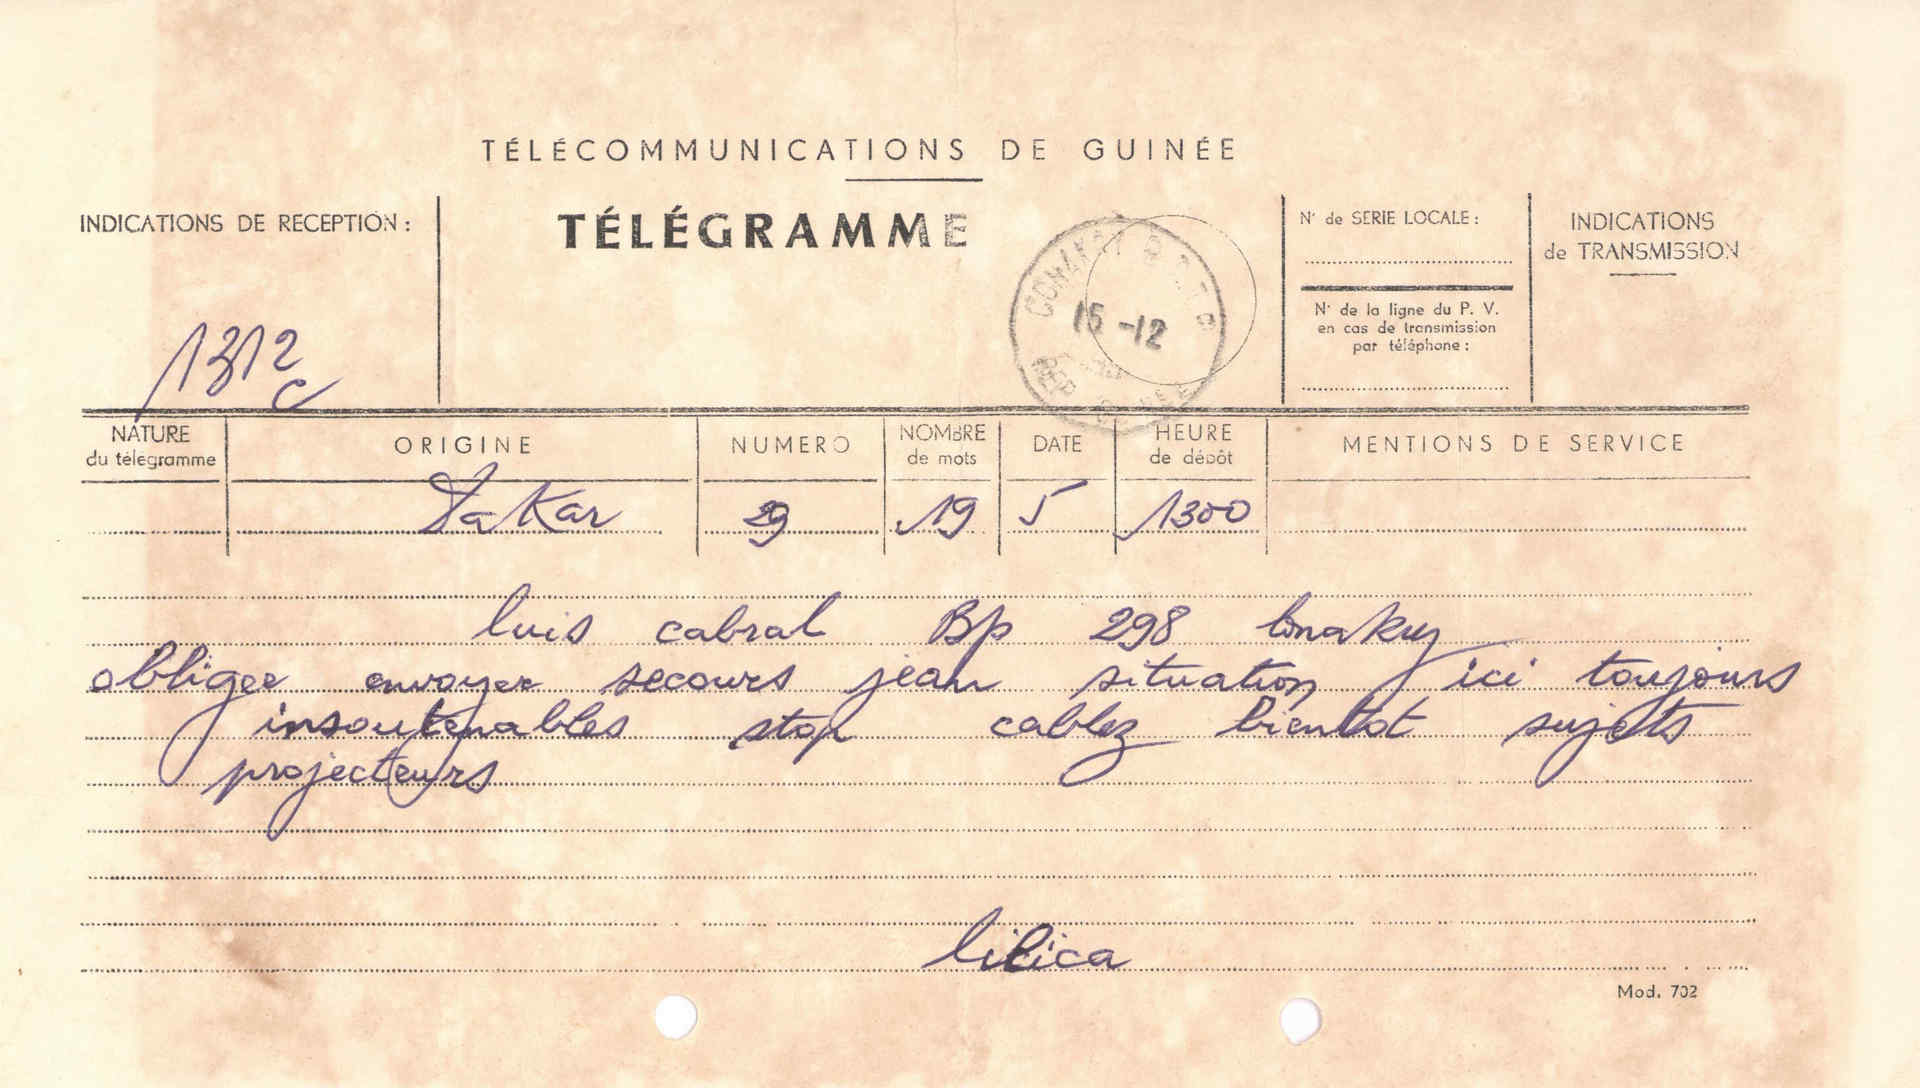 TÉLÉCOMMUNICATIONS DE GUINÉE
INDICATIONS DE RECEPTION :
TÉLÉGRAMME
N° de SERIE LOCALE :
INDICATIONS
de TRANSMISSION
N° de la ligne du P. V.
en cas de transmission
par téléphone :
CONAKRY
15 -12
REP GUINEE
1312
c
NATURE
du télegramme
ORIGINE
NUMERO
NOMBRE
de mots
DATE
HEURE
de dépôt
MENTIONS DE SERVICE
Dakar 29 19 5 1300
luis cabral Bp 298 Conakry
obligee envoyer secours jean situation ici toujours
insoutenables stop cablez bientot sujets
projecteurs
lilica
Mod. 702